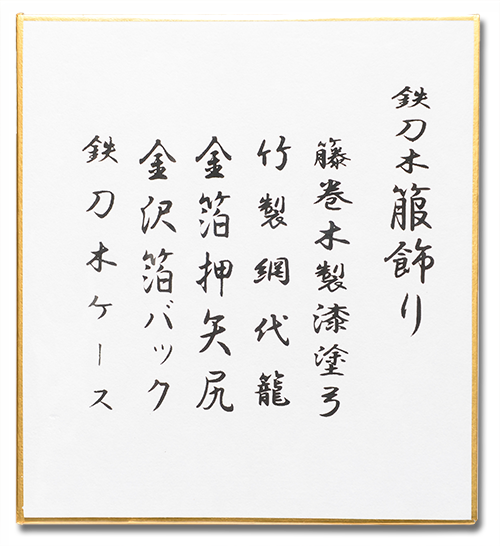 鉄刀木箙飾り
籐巻木製漆塗弓
竹製網代籠
金箔押矢尻
金沢箔バック
鉄刀木ケース